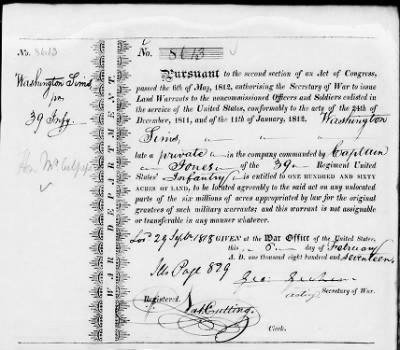 No. 8613
No. 8613
Washington Sims
39 Infy.
Hon. Mr
WAR DEPARTMENT.
Pursuant to the second section of an Act of Congress,
passed the 6th of May, 1812, authorising the Secretary of War to issue
Land Warrants to the noncommissioned Officers and Soldiers enlisted
in the service of the United States, conformably to the acts of the 24th of
December, 1811, and of the 11th of January, 1812, Washington
Sims,
late a private in the company commanded by Captain
Jones of the 39 Regiment United
States' Infantry is entitled to ONE HUNDRED AND SIXTY
ACRES OF LAND, to be located agreeably to the said act on any unlocated
parts of the six millions of acres appropriated by law for the original
grantees of such military warrants; and this warrant is not assignable
or transferable in any manner whatever.
GIVEN at the War Office of the United States,
this day of February
A. D. one thousand eight hundred and seventeen.
Page 829
Geo:
Secretary of War.
Registered.
Nat Cutting,
Clerk.